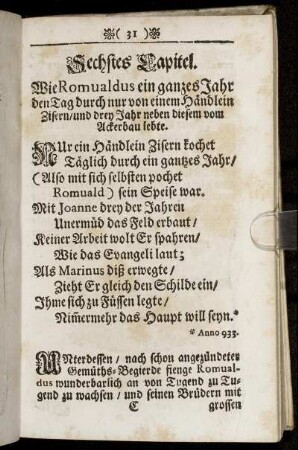 ( 31 )
Sechstes Capitel.
Wie Romualdus ein ganzes Jahr
den Tag durch nur von einem Händlein
Zisern/und drey Jahr neben diesem vom
Ackerbau lebte.
NUr ein Händlein Zisern kochet
Täglich durch ein gantzes Jahr/
(Also mit sich selbsten pochet
Romuald) sein Speise war.
Mit Joanne drey der Jahren
Unermüd das Feld erbaut/
Keiner Arbeit wolt Er spahren/
Wie das Evangeli laut;
Als Marinus diß erwegte/
Zieht Er gleich den Schilde ein/
Ihme sich zu Füssen legte/
Nim̄ermehr das Haupt will seyn.*
* Anno 933.
UNterdessen / nach schon angezündeter
Gemüths-Begierde fienge Romual-
dus wunderbarlich an von Tugend zu Tu-
gend zu wachsen / und seinen Brüdern mit
C grossen